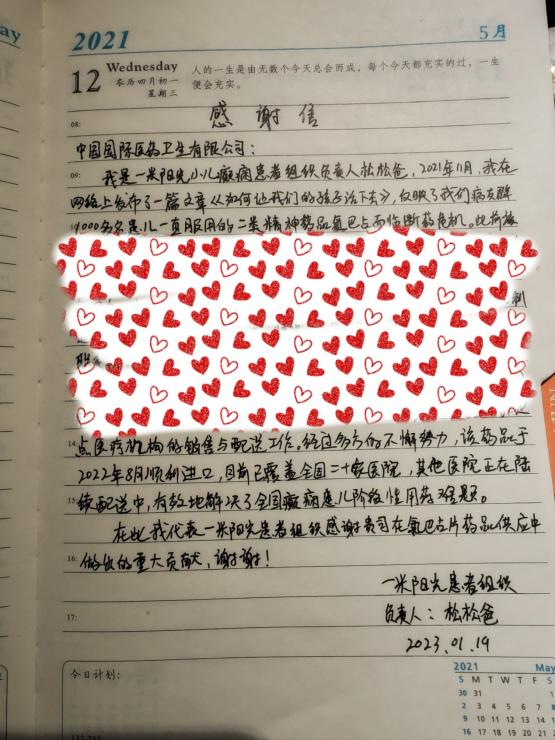 ay
2021
5月
12
Wednesday
农历四月初一
星期三
人的一生是由无数个今天总会而成，每个今天都充实的过，一生
便会充实。
08:
感谢信
中国国际医药卫生有限公司：
09:
我是一米阳光小儿癫痫患者组织负责人松松爸，2021年11月，我在
网络上发布了一篇文章《如何让我们的孩子活下去》，反映了我们病友群
000多名患儿一直服用的二类精神药品氯巴占面临断药危机。
14:
点医疗机构的销售与配送工作。经过多方的不懈努力，该药品于
2022年8月顺利进口，目前已覆盖全国二十家医院，其他医院正在陆
15:
续配送中，有效地解决了全国癫痫患儿阶段性用药难题。
在此我代表一米阳光患者组织感谢贵司在氯巴占片药品供应中
16:
做出的重大贡献，谢谢！
一米阳光患者组织
17:
负责人：松松爸
2023.01.19
今日计划：
2021
May
S M T W T F S
30 31 1
2 3 4 5 6 7 8
9 10 11 12 13 14
16 17 18 19 20 21